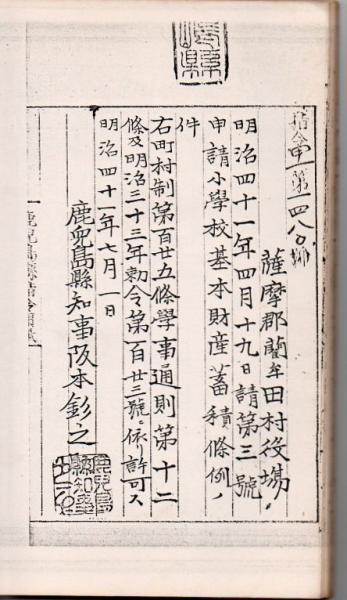 指令一第一四八〇號
薩摩郡藺牟田村役場
明治四十一年四月十九日請第三號
申請小學校基本財産蓄積條例ノ
件
右町村制第百廿五條學事通則第十二
條及明治三十三年勅令第百廿三號ニ依リ許可ス
明治四十一年七月一日
鹿兒島縣知事阪本釤之
鹿兒島縣知事之印